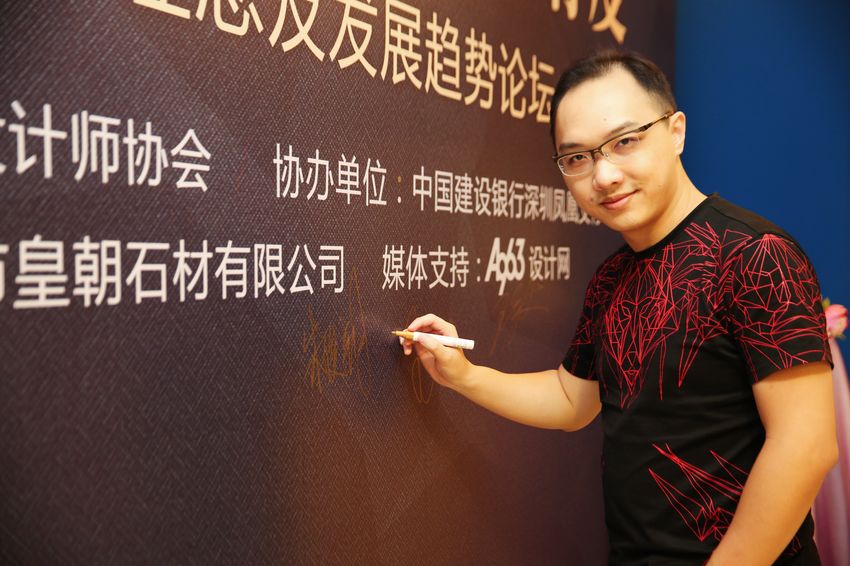 业态及发展趋势论坛
设计师协会 协办单位：中国建设银行深圳凤凰支
皇朝石材有限公司 媒体支持：A963 设计网